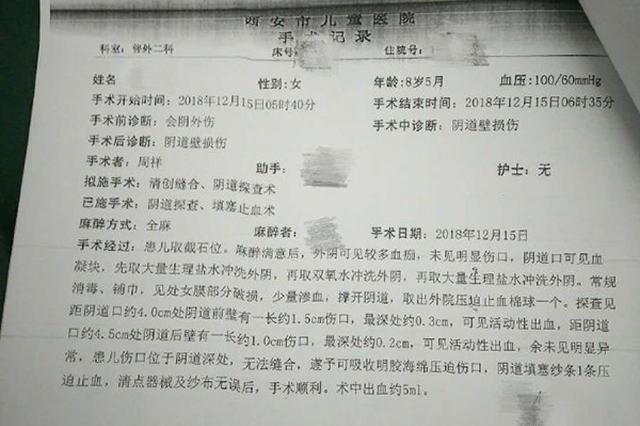 西安市儿童医院
手术记录
科室：普外二科 床号: 住院号:
姓名 性别:女 年龄:8岁5月 血压:100/60mmHg
手术开始时间：2018年12月15日05时40分 手术结束时间：2018年12月15日06时35分
手术前诊断：会阴外伤 手术中诊断：阴道壁损伤
手术后诊断：阴道壁损伤
手术者：周祥 助手： 护士：无
拟施手术：清创缝合、阴道探查术
已施手术：阴道探查、填塞止血术
麻醉方式：全麻 麻醉者： 手术日期：2018年12月15日
手术经过：患儿取截石位。麻醉满意后，外阴可见较多血痂，未见明显伤口，阴道口可见血
凝块，先取大量生理盐水冲洗外阴，再取双氧水冲洗外阴，再取大量生理盐水冲洗外阴。常规
消毒、铺巾，见处女膜部分破损，少量渗血，撑开阴道，取出外院压迫止血棉球一个。探查见
距阴道口约4.0cm处阴道前壁有一长约1.5cm伤口，最深处约0.3cm，可见活动性出血，距阴道
口约4.5cm处阴道后壁有一长约1.0cm伤口，最深处约0.2cm，可见活动性出血，余未见明显异
常，患儿伤口位于阴道深处，无法缝合，遂予可吸收明胶海绵压迫伤口，阴道填塞纱条1条压
迫止血，清点器械及纱布无误后，手术顺利。术中出血约5ml。